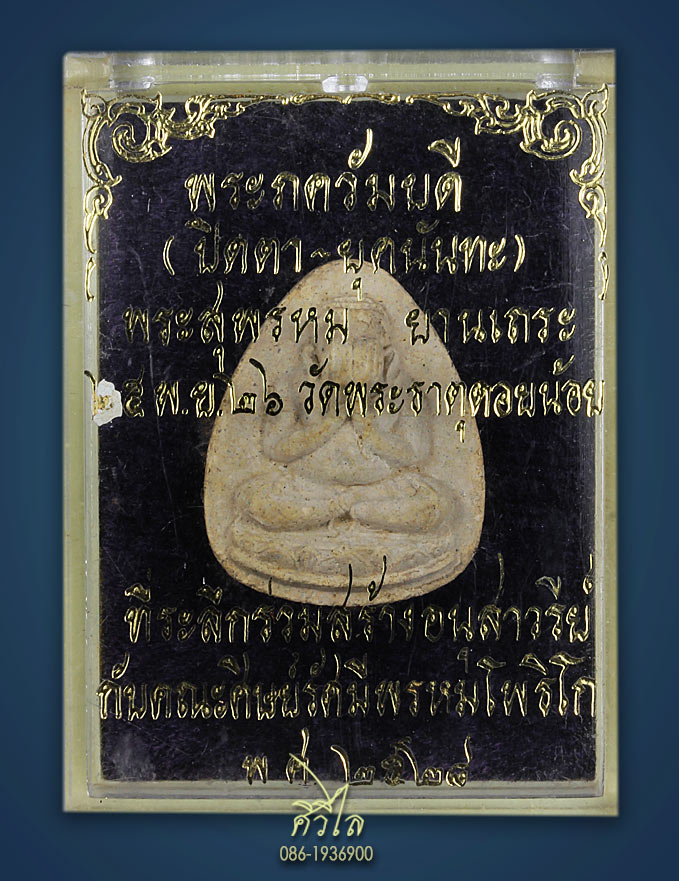 พระภควัมบดี
(ปิดตา~ยุคนันทะ)
พระสุพรหม ยานเถระ
๒๕ พ.ย.๒๖ วัดพระธาตุดอยน้อย
ที่ระลึกร่วมสร้างอนุสาวรีย์
กับคณะศิษย์รัศมีพรหมโพธิโก
พ ศ ๒๕๒๘
ศิวิไล
086-1936900